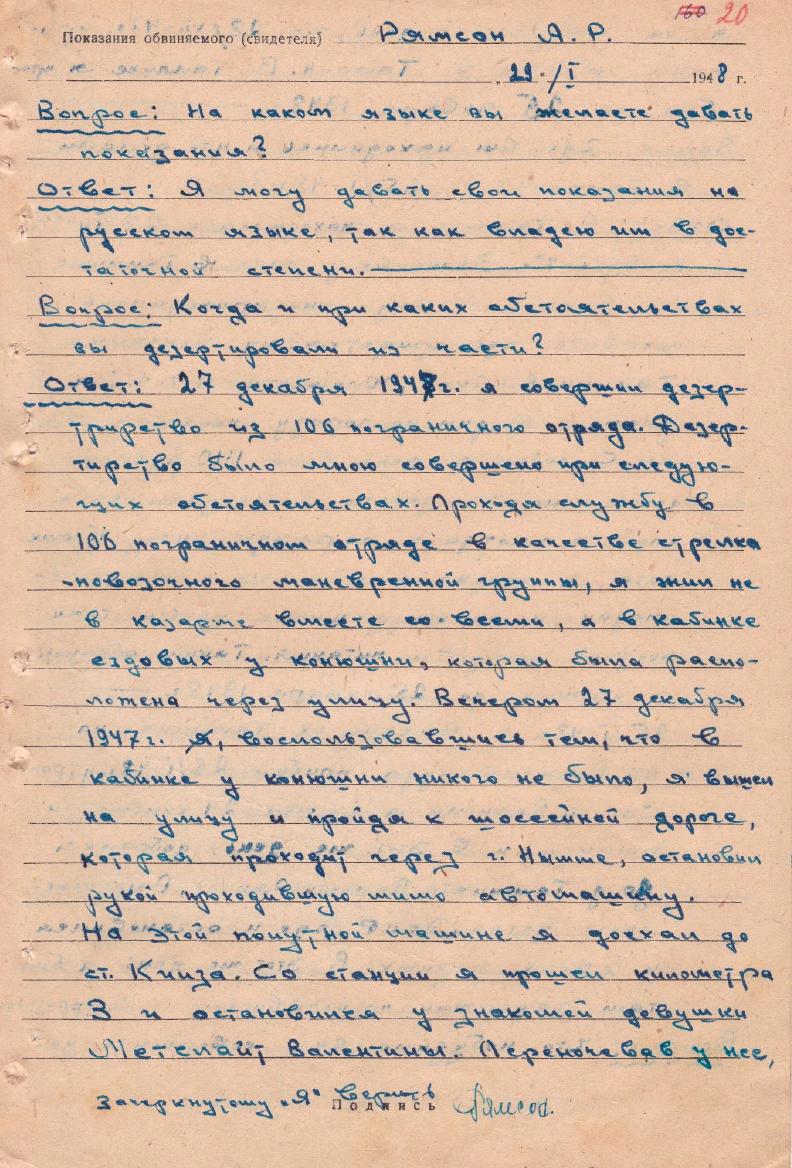 160 20
Показания обвиняемого (свидетеля) Рямсон А. Р.
„22“ / I 1948 г.
Вопрос: На каком языке вы желаете давать
показания?
Ответ: Я могу давать свои показания на
русском языке, так как владею им в дос-
таточной степени.
Вопрос: Когда и при каких обстоятельствах
вы дезертировали из части?
Ответ: 27 декабря 1947 г. я совершил дезер-
тирство из 106 пограничного отряда. Дезер-
тирство было мною совершено при следую-
щих обстоятельствах. Проходя службу в
106 пограничном отряде в качестве стрелка
-повозочного маневренной группы, я жил не
в казарме вместе со всеми, а в кабинке
ездовых у конюшни, которая была распо-
ложена через улицу. Вечером 27 декабря
1947 г. Я, воспользовавшись тем, что в
кабинке у конюшни никого не было, я вышел
на улицу и пройдя к шоссейной дороге,
которая проходит через г. Нымме, остановил
рукой проходившую мимо автомашину.
На этой попутной машине я доехал до
ст. Кийза. Со станции я прошел километра
3 и остановился у знакомой девушки
Метслайт Валентины. Переночевав у нее,
Зачеркнутому „Я“ верить
Подпись Рямсон.